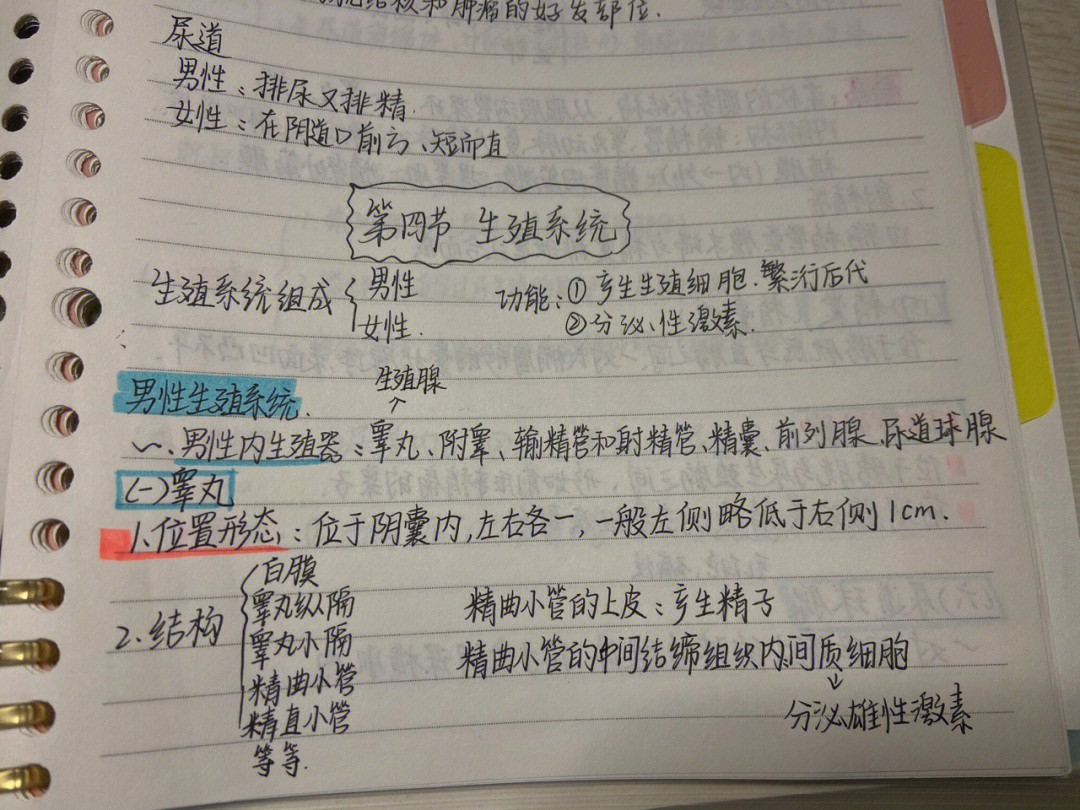 结核和肿瘤的好发部位.
尿道
男性:排尿又排精.
女性:在阴道口前方,短而直
第四节 生殖系统
生殖系统组成 男性 功能:①产生生殖细胞.繁衍后代
女性. ②分泌性激素.
生殖腺
男性生殖系统.
一.男性内生殖器:睾丸、附睾、输精管和射精管、精囊、前列腺、尿道球腺
(一)睾丸
1.位置形态:位于阴囊内,左右各一,一般左侧略低于右侧1cm.
2.结构
白膜
睾丸纵隔
睾丸小隔
精曲小管
精直小管
等等.
精曲小管的上皮:产生精子
精曲小管的中间结缔组织内间质细胞
分泌雄性激素